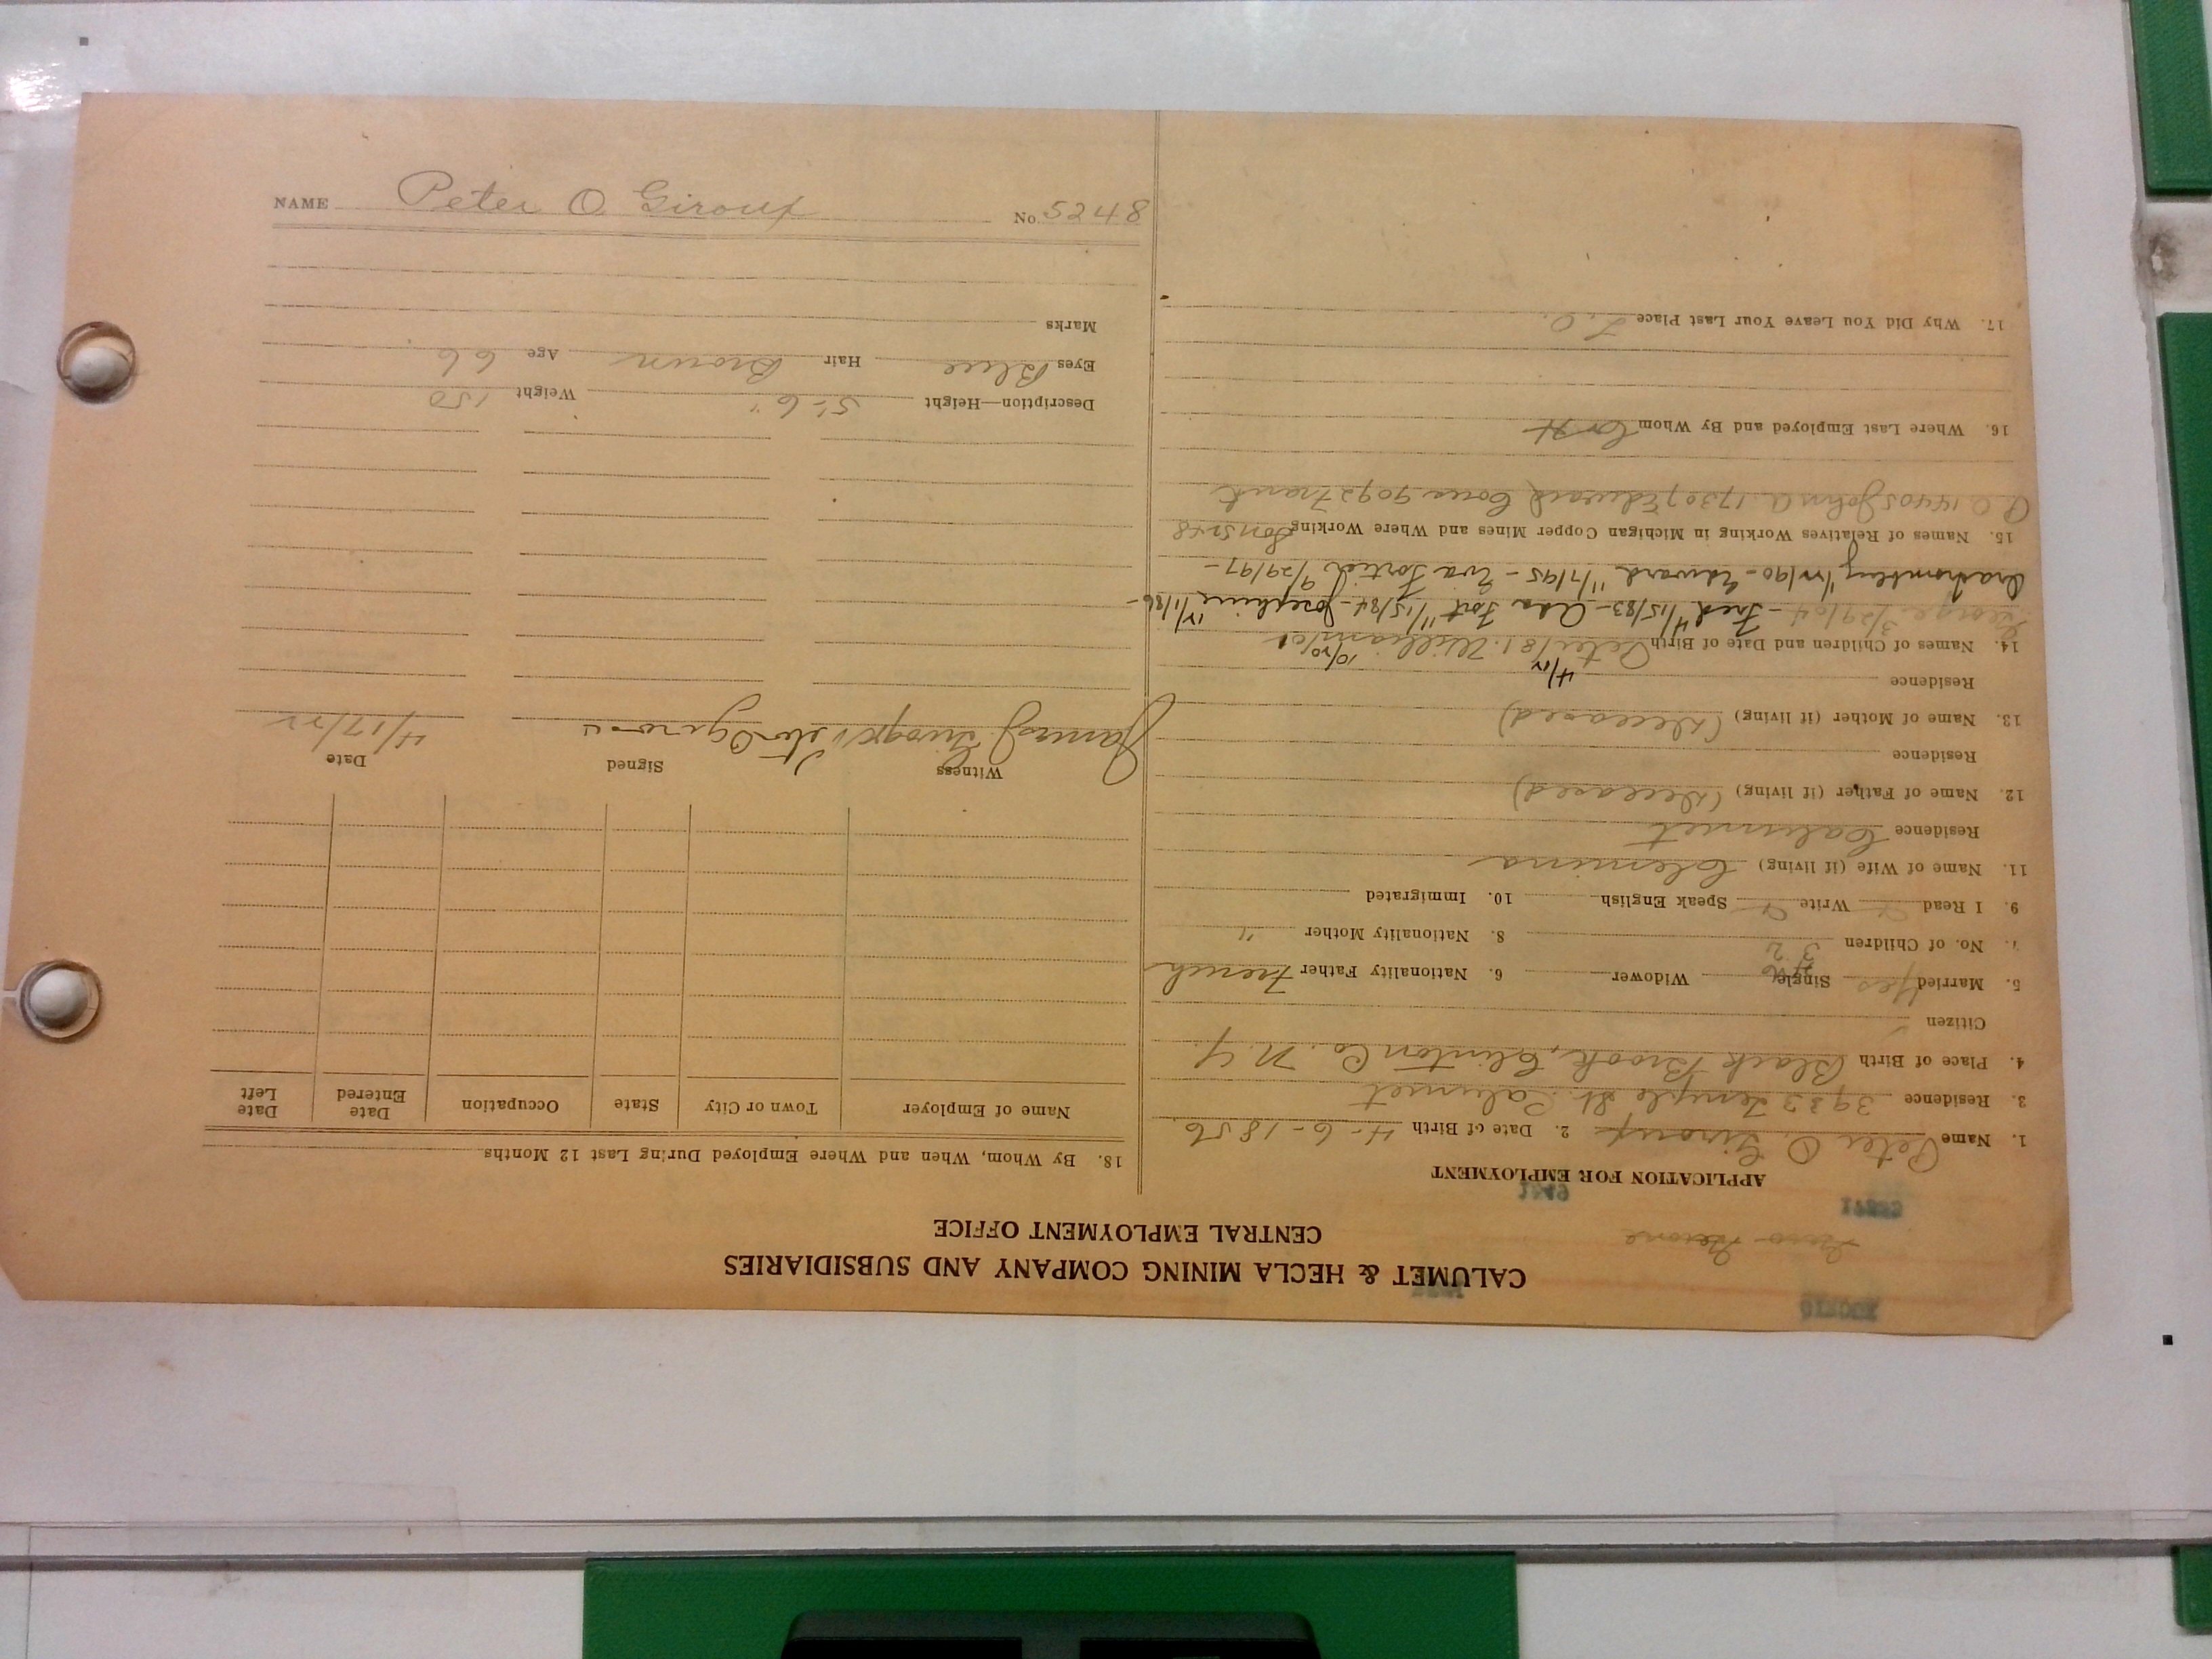 CALUMET & HECLA MINING COMPANY AND SUBSIDIARIES
CENTRAL EMPLOYMENT OFFICE
APPLICATION FOR EMPLOYMENT
1. Name Peter O. Giroux 2. Date of Birth 4-6-1856.
3. Residence 3933 Temple St. Calumet
4. Place of Birth Black Brook, Clinton Co. N.Y.
Citizen
5. Married Yes Single Widower 6. Nationality Father French
7. No. of Children 8. Nationality Mother "
9. I Read Write Speak English 10. Immigrated
11. Name of Wife (if living) Clemina
Residence Calumet
12. Name of Father (if living) (Deceased)
Residence
13. Name of Mother (if living) (Deceased)
Residence
14. Names of Children and Date of Birth Peter 4/12/81. William 10/20/01
George 3/29/04 - Fred 4/15/83 - Ada Fort 11/15/84 - Josephine 12/1/86 -
1/22/90 - Edward 11/7/95 - Eva Fortier 9/29/97 -
15. Names of Relatives Working in Michigan Copper Mines and Where Working Son 5248
P.O. 14405 John A. 17307 Edward Cousin 9092 Frank
16. Where Last Employed and By Whom C & H
17. Why Did You Leave Your Last Place L.O.
18. By Whom, When and Where Employed During Last 12 Months
Name of Employer Town or City State Occupation Date Entered Date Left
Witness Signed Date
James J. Giroux Peter O Giroux 4/17/22
Description—Height 5'-6" Weight 150
Eyes Blue Hair Brown Age 66
Marks
NAME Peter O. Giroux No. 5248